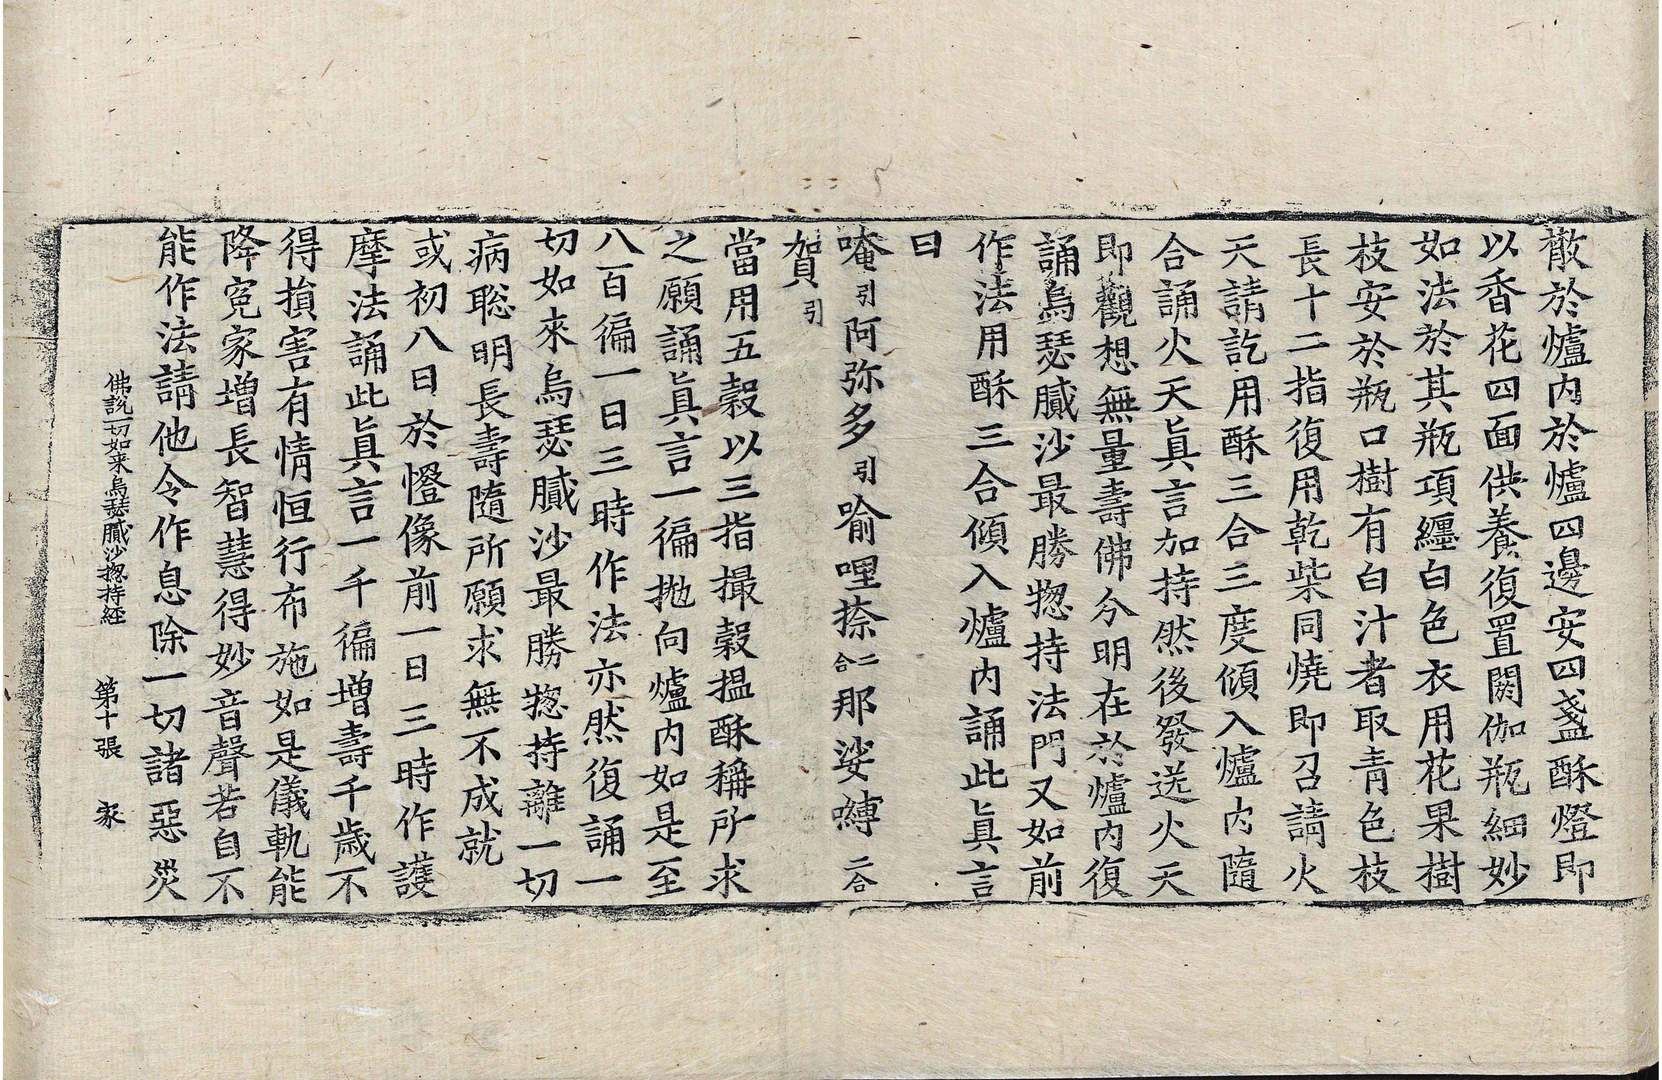 散於爐內於爐四邊安四盞酥燈即
以香花四面供養復置閼伽瓶細妙
如法於其瓶項纏白色衣用花果樹
枝安於瓶口樹有白汁者取青色枝
長十二指復用乾柴同燒即召請火
天請訖用酥三合三度傾入爐內隨
合誦火天眞言加持然後發送火天
即觀想無量壽佛分明在於爐內復
誦烏瑟膩沙最勝揔持法門又如前
作法用酥三合傾入爐內誦此眞言
曰
唵引阿弥多引喻哩捺二合那娑嚩二合
賀引
當用五穀以三指撮穀搵酥稱所求
之願誦眞言一徧拋向爐內如是至
八百徧一日三時作法亦然復誦一
切如來烏瑟膩沙最勝揔持離一切
病聡明長壽隨所願求無不成就
或初八日於㡧像前一日三時作護
摩法誦此眞言一千徧增壽千歲不
得損害有情恒行布施如是儀軌能
降寃家增長智慧得妙音聲若自不
能作法請他令作息除一切諸惡災
佛説一切如来烏瑟膩沙揔持経 第十張 家